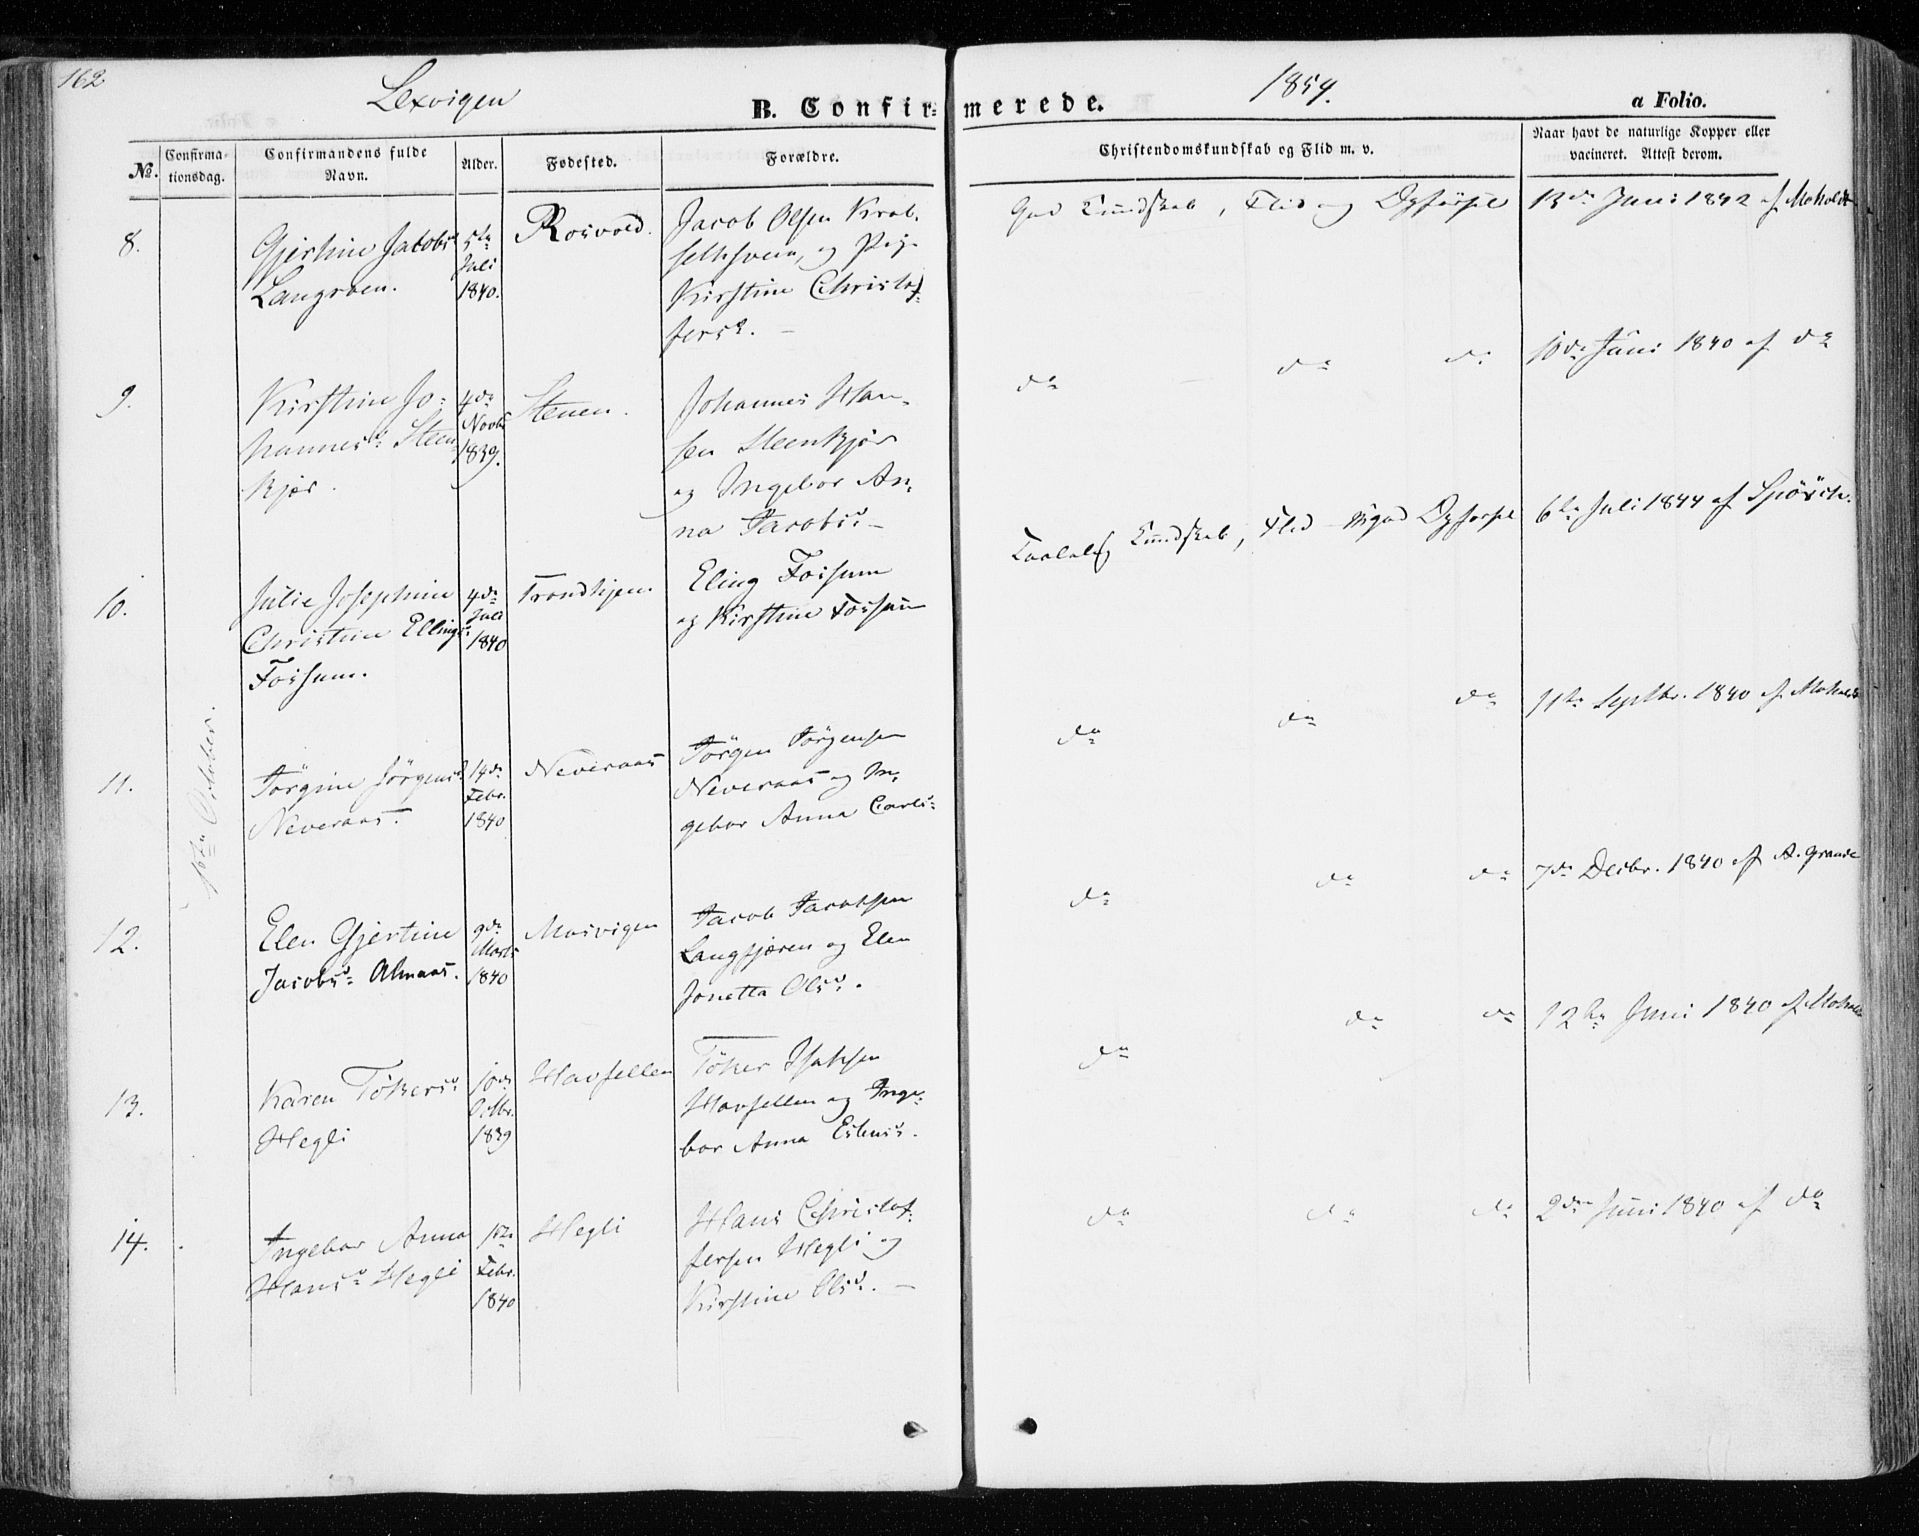 162
Lexvigen
1854.
B. Confirmerede.
a Folio.
No.
Confirmationsdag.
Confirmandens fulde Navn.
Alder.
Fødested.
Forældre.
Christendomskundskab og Flid m. v.
Naar havt de naturlige Kopper eller
vacineret. Attest derom.
1ste October.
8.
Gjertine Jacobsd
Langroen.
5te
Juli
1840.
Rosvold.
Jacob Olsen
og Pige
Kirstine Christof-
fersd. —
God Kundskab, Flid og Opførsel
13de Juni 1842 af Moholdt
9.
Kirstine Jo-
hannesd. Steen-
kjær.
4de
Novbr
1839.
Stenen.
Johannes Han-
sen Steenkjær
og Ingebor An-
na Jacobsd. —
do do do
10de Juni 1840 af do
10.
Julie Josephine
Christine Ellingsd.
Fossum.
4de
Juli
1840
Trondhjem
Eling Fossum
og Kirstine Fossum
Taalelig Kundskab, Flid god Opførsel
6te Juli 1844 af
11.
Jörgine Jörgensd.
Neveraas.
14de
Febr.
1840
Neveraas
Jörgen Jörgensen
Neveraas og In-
gebor Anna Carlsd.
do do do
11te Septbr. 1840 af Moholdt
12.
Elen Gjertine
Jacobsd. Almaas.
9de
Marts
1840
Mosvigen
Jacob Jacobsen
Langtjæren og Elen
Jonetta Olsd.
do do do
7de Decbr. 1840 af A. Grande
13.
Karen Tökersd.
Hegli
10de
Octbr.
1839
Havfellen
Töker Isaksen
Havfellen og Inge-
bor Anna Estensd.
do do do
12te Juni 1840 af Moholdt
14.
Ingebor Anna
Hansd. Hegli
1ste
Febr.
1840
Hegli
Hans Christof-
fersen Hegli og
Kirstine Olsd. —
do do do
2den Juni 1840 af do